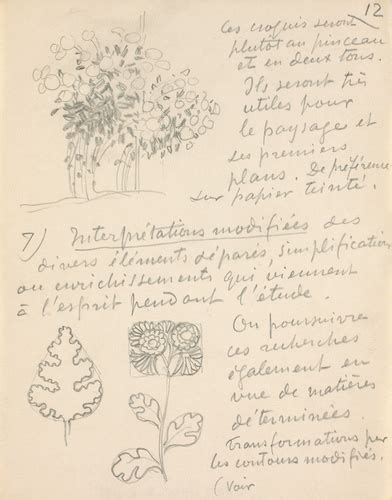 12
Ces croquis seront
plutôt au pinceau
et en deux tons.
Ils seront très
utiles pour
le paysage et
les premiers
plans. De préférence
sur papier teinté.
7) Interprétations modifiées des
divers éléments séparés, simplification
ou enrichissements qui viennent
à l'esprit pendant l'étude.
On poursuivra
ces recherches
également en
vue de matières
déterminées.
Transformations par
les contours modifiés.
(Voir